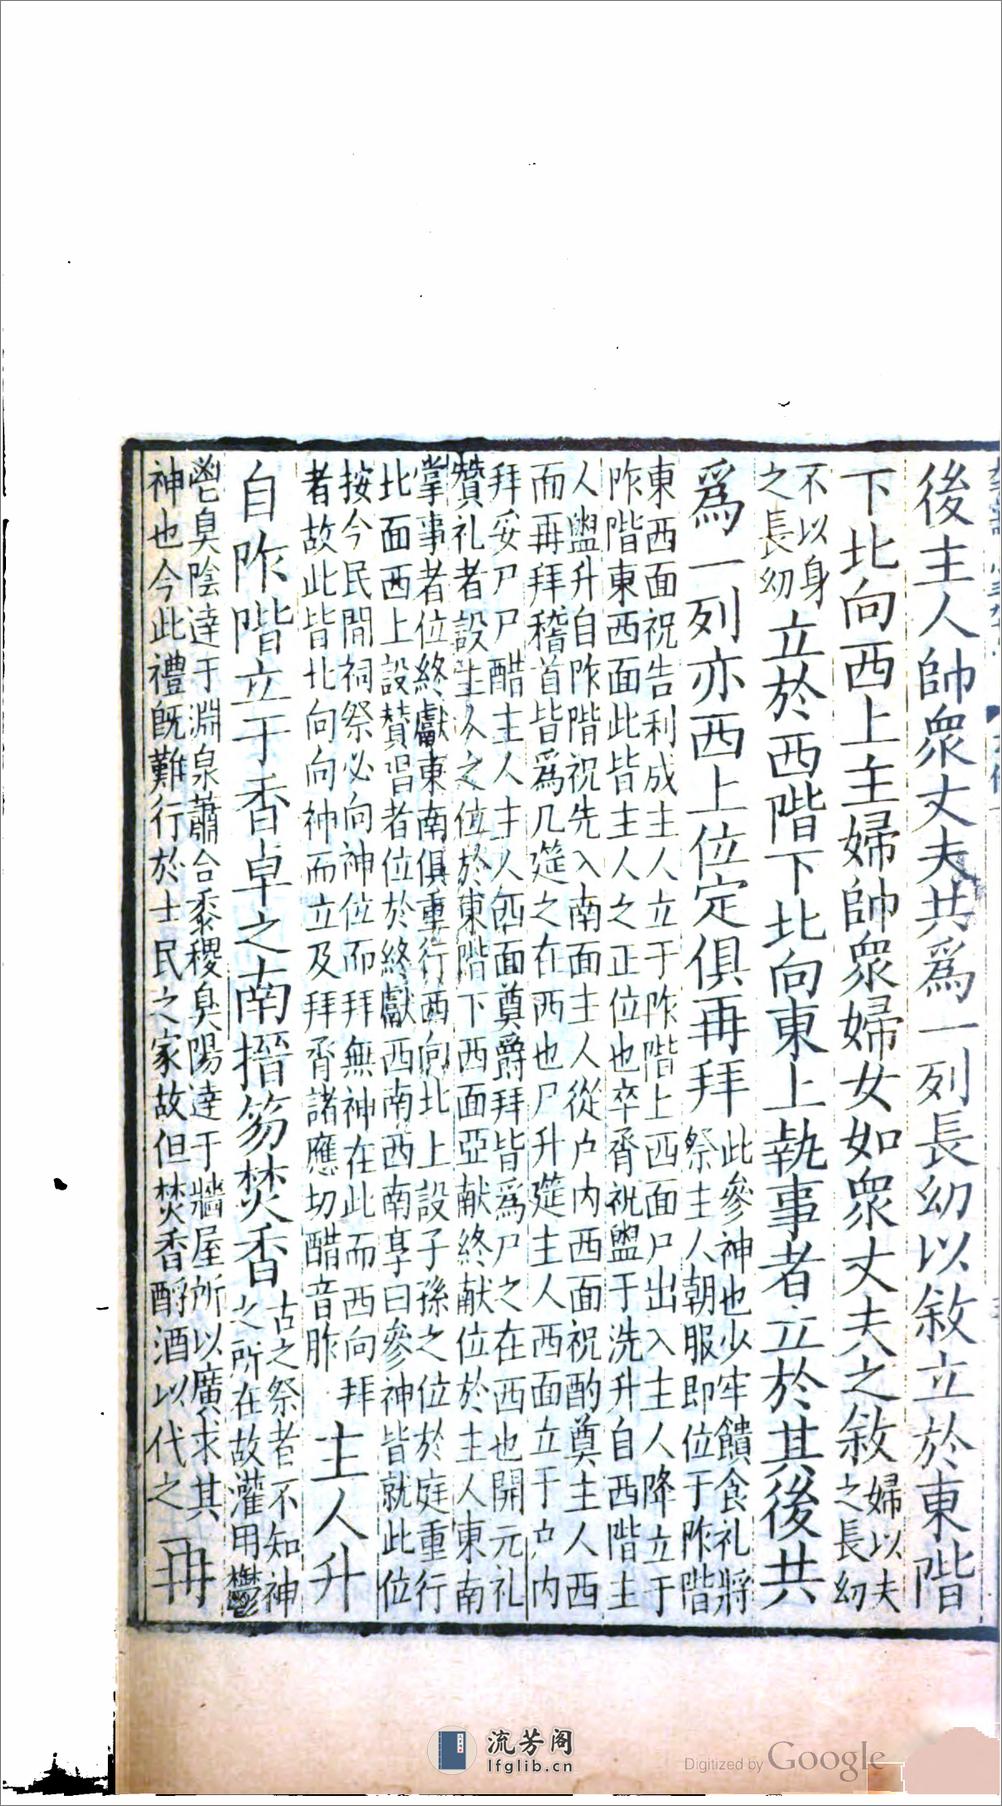 後主人帥衆丈夫共爲一列長幼以敘立於東階
下北向西上主婦帥衆婦女如衆丈夫之敘婦以夫
之長幼
不以身
之長幼立於西階下北向東上執事者立於其後共
爲一列亦西上位定俱再拜此參神也少牢饋食礼將
祭主人朝服即位于阼階
東西面祝告利成主人立于阼階上西面尸出入主人降立于
阼階東西面此皆主人之正位也卒脀祝盥于洗升自西階主
人盥升自阼階祝先入南面主人從户内西面祝酌奠主人西
而再拜稽首皆爲几筵之在西也尸升筵主人西面立于户内
拜妥尸尸醋主人主人西面奠爵拜皆爲尸之在西也開元礼
贊礼者設主人之位於東階下西面亞献終献位於主人東南
掌事者位終獻東南俱重行西向北上設子孫之位於庭重行
北面西上設贊唱者位於終獻西南西南享曰參神皆就此位
按今民間祠祭必向神位而拜無神在此而西向拜
者故此皆北向向神而立及拜脀諸應切醋音胙主人升
自阼階立于香卓之南搢笏焚香古之祭者不知神
之所在故灌用鬱
鬯臭陰達于淵泉蕭合黍稷臭陽達于牆屋所以廣求其
神也今此禮旣難行於士民之家故但焚香酹酒以代之再
流芳阁
lfglib.cn
Digitized by Google